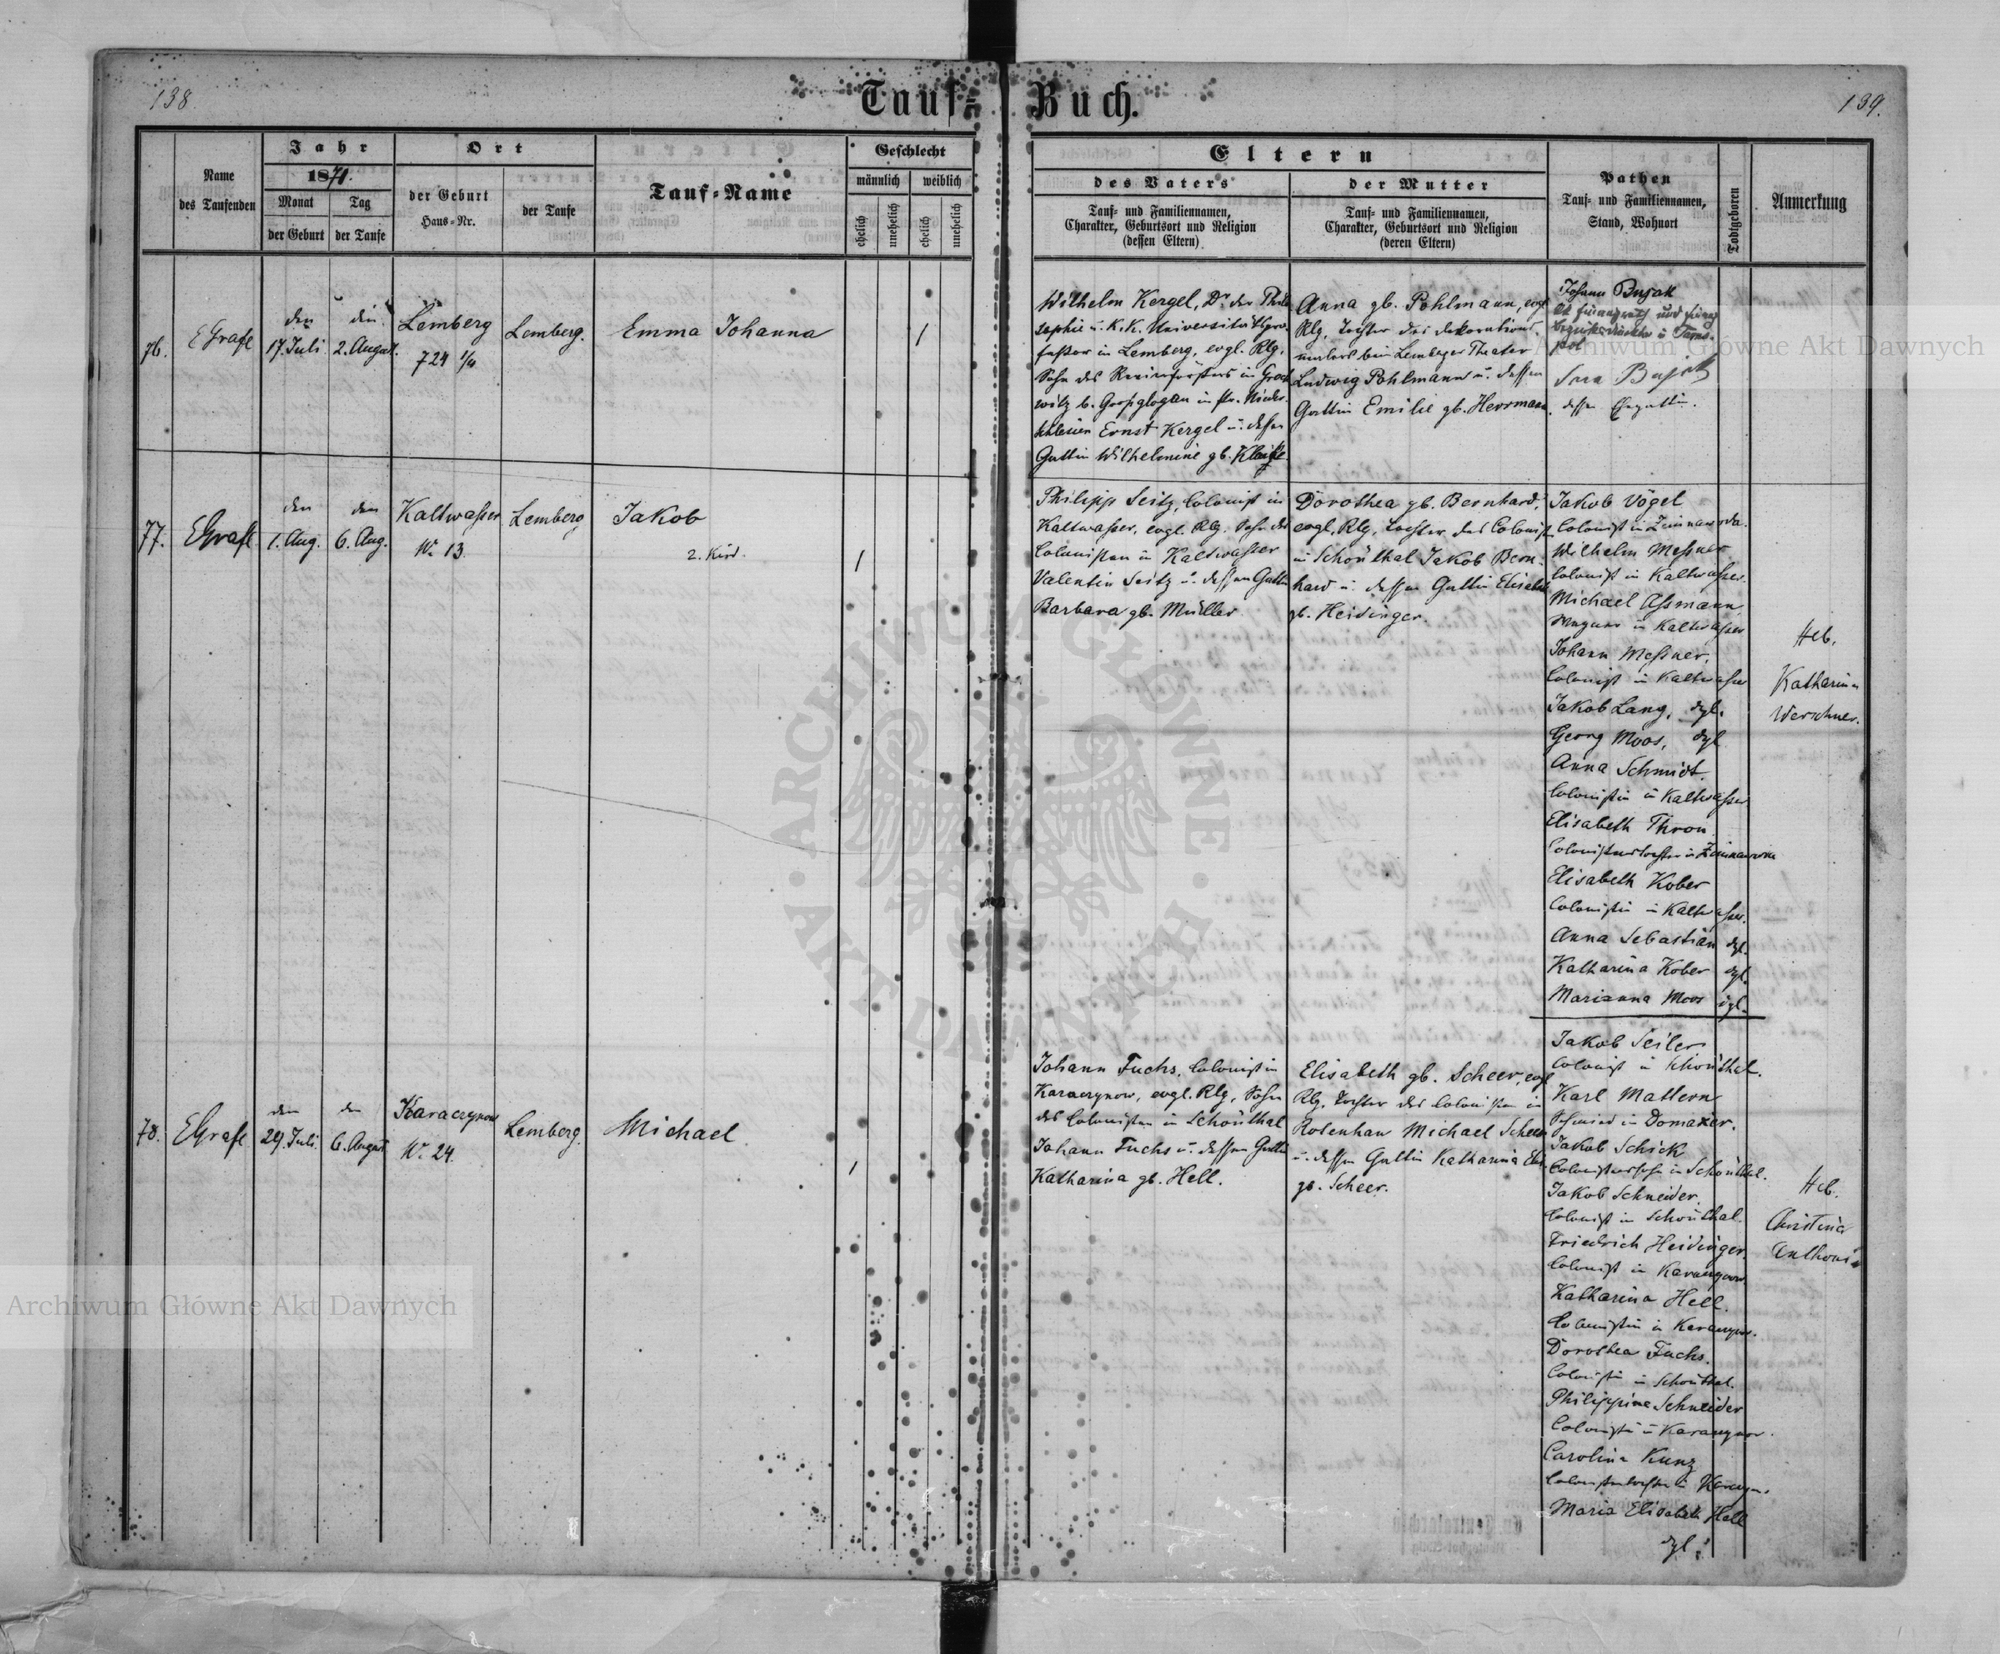 138
Tauf-Buch.
139.
Name
des Taufenden
Jahr
1871.
Monat
der Geburt
Tag
der Taufe
Ort
der Geburt
Haus-Nr.
der Taufe
Tauf-Name
Geschlecht
männlich
weiblich
ehelich
unehelich
ehelich
unehelich
Eltern
des Vaters
Tauf- und Familiennamen,
Charakter, Geburtsort und Religion
(dessen Eltern)
der Mutter
Tauf- und Familiennamen,
Charakter, Geburtsort und Religion
(deren Eltern)
Pathen
Tauf- und Familiennamen,
Stand, Wohnort
Todtgeboren
Anmerkung
76.
EGrafl
den
17. Juli
den
2. August.
Lemberg
724 1/4
Lemberg.
Emma Johanna
1
Wilhelm Kergel, Dr der Philo
sophie u. K. K. Universitätspro-
fessor in Lemberg, evgl. Rlg.
Sohn des Revierförsters in
witz b. Grossglogau in pr. Nieder-
schlesien Ernst Kergel u. dessen
Gattin Wilhelmine gb.
Anna gb. Pohlmann, evgl
Rlg, Tochter des Dekorations-
beim Lemberger Theater
Ludwig Pohlmann u. dessen
Gattin Emilie gb. Herrmann.
Johann Busak
Finanzrath und Finanz
bezirksdirektor in Tarno-
pol
dessen Ehegattin.
77.
EGrafl
den
1. Aug.
den
6. Aug.
Kaltwasser
Nr. 13.
Lemberg
Jakob
2. Kind.
1
Philipp Seitz, Colonist in
Kaltwasser, evgl. Rlg. Sohn des
Colonisten in Kaltwasser
Valentin Seitz u. dessen Gattin
Barbara gb. Müller
Dorothea gb. Bernhard,
evgl. Rlg, Tochter des Colonist.
in Schönthal Jakob Bern-
hard u. dessen Gattin Elisabeth
gb. Heidinger.
Jakob Vogel
Colonist in Zimnawoda.
Wilhelm Messner
Colonist in Kaltwasser.
Michael Assmann,
Wagner in Kaltwasser
Johann Messner,
Colonist in Kaltwasser
Jakob Lang, dgl.
Georg Moos, dgl
Anna Schmidt.
Colonistin in Kaltwasser
Elisabeth Thron.
Colonistentochter in Zimnawoda
Elisabeth Kober
Colonistin in Kaltwasser.
Anna Sebastian dgl.
Katharina Kober dgl.
Marianna Moos dgl.
Heb.
Katharina
Werschner.
78.
EGrafl
den
29. Juli
den
6. August
Karaczynow
Nr. 24.
Lemberg.
Michael
1
Johann Fuchs, Colonist in
Karaczynow, evgl. Rlg, Sohn
des Colonisten in Schönthal
Johann Fuchs u. dessen Gattin
Katharina gb. Hell.
Elisabeth gb. Scheer, evgl
Rlg. Tochter des Colonisten in
Rosenhan Michael Scheer
u. dessen Gattin Katharina
gb. Scheer.
Jakob Seiler
Colonist in Schönthal.
Karl Mattern
Schmied in Domazier.
Jakob Schick
Colonistensohn in Schönthal.
Jakob Schneider.
Colonist in Schönthal.
Friedrich Heidinger.
Colonist in Karaczynow
Katharina Hell.
Colonistin in Karaczynow.
Dorothea Fuchs.
Colonistin in Schönthal.
Philippine Schneider
Colonistin in Karaczynow.
Carolina Kunz
Colonistentochter in Karaczyn.
Maria Elisabeth Hell
dgl.
Heb.
Christina
Anthoni
Archiwum Główne Akt Dawnych
Archiwum Główne Akt Dawnych
ARCHIWUM GŁÓWNE · AKT DAWNYCH ·